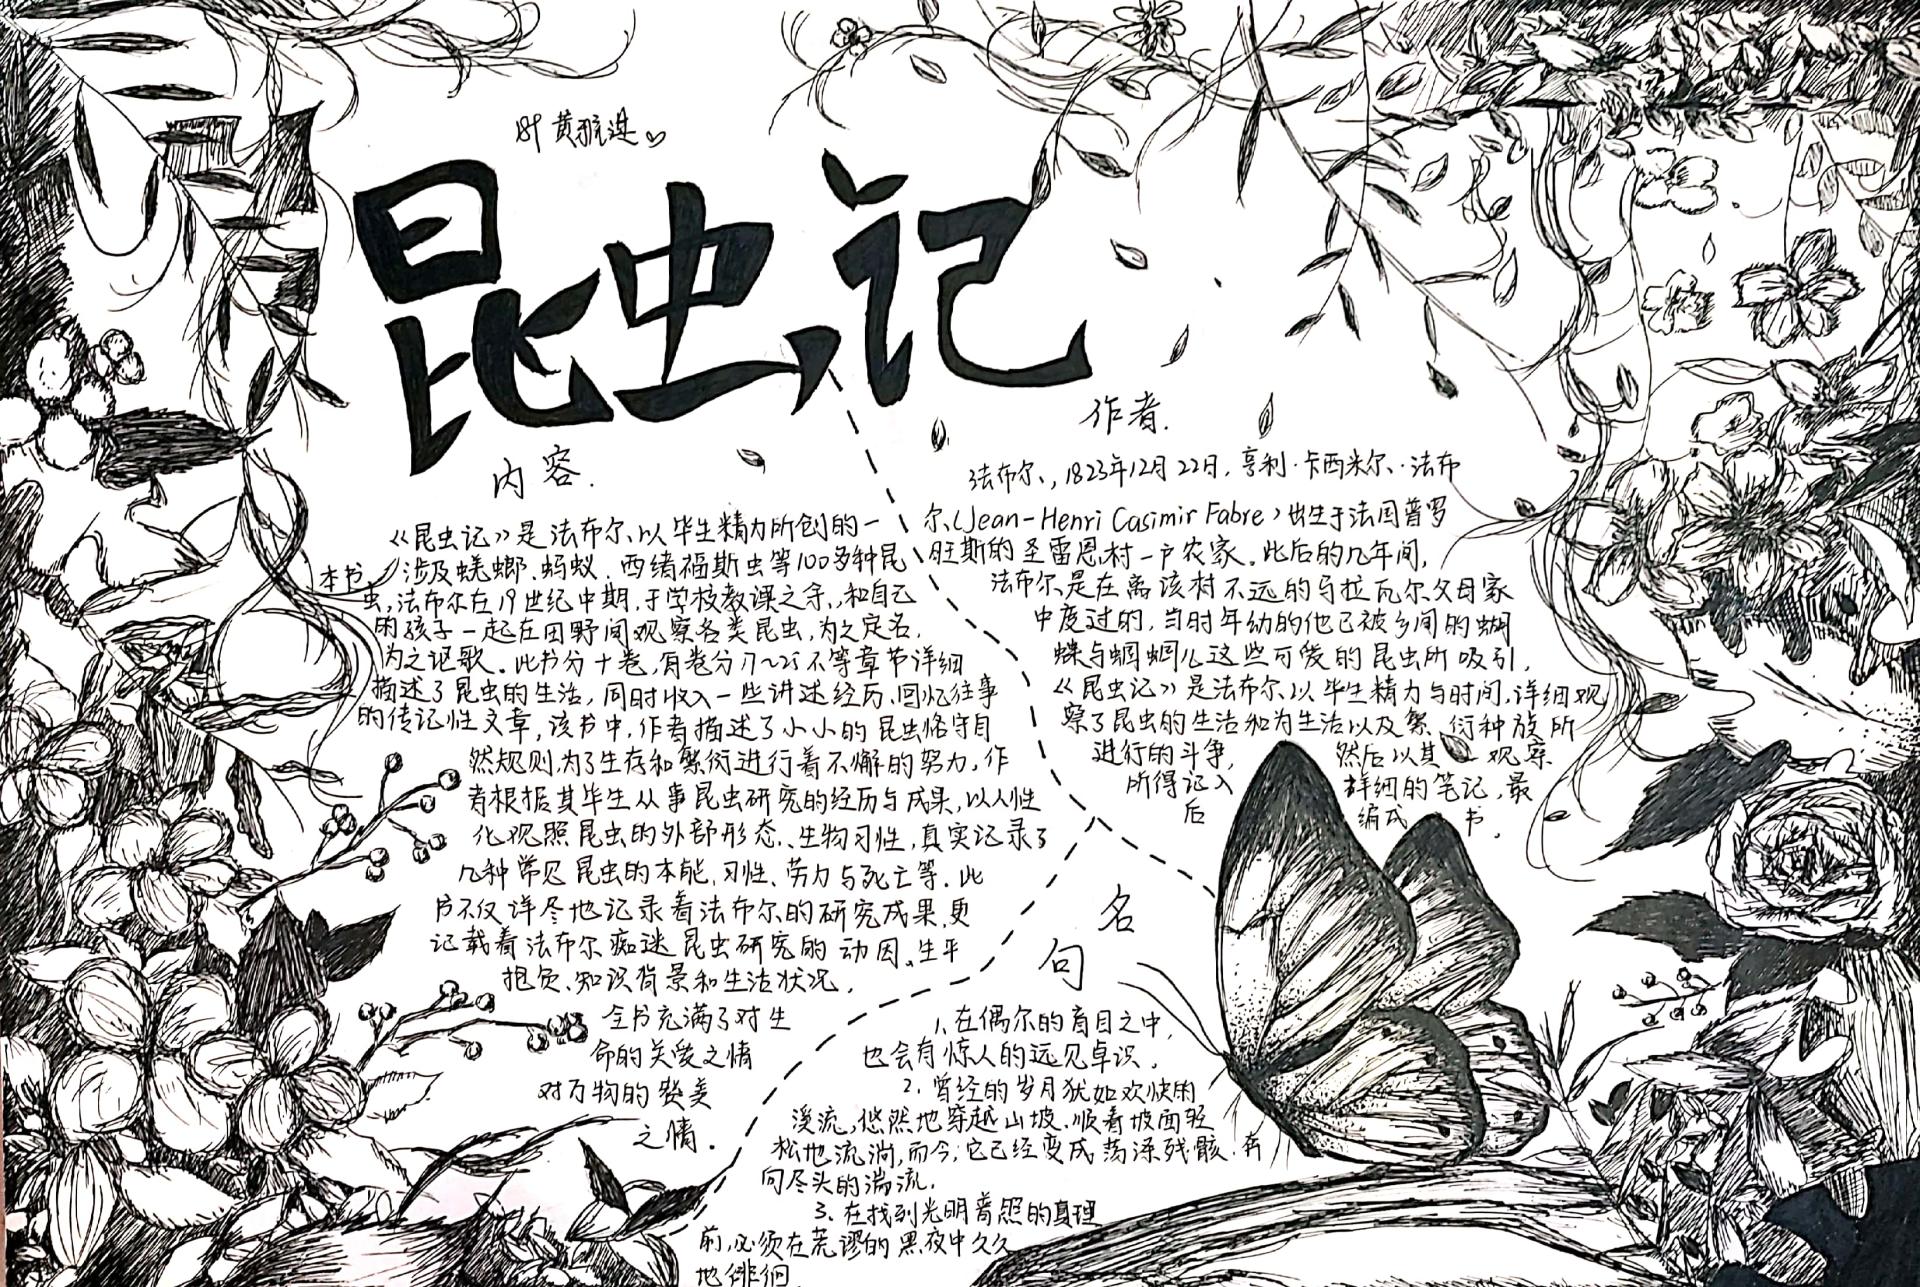 黄
昆虫记
内容.
《昆虫记》是法布尔以毕生精力所创的一
本书,涉及蜣螂、蚂蚁、西绪福斯虫等100多种昆
虫,法布尔在19世纪中期,于学校教课之余,和自己
的孩子一起在田野间观察各类昆虫,为之定名,
为之记歌.此书分十卷,每卷分17~25不等章节详细
描述了昆虫的生活,同时收入一些讲述经历、回忆往事
的传记性文章,该书中,作者描述了小小的昆虫恪守自
然规则,为了生存和繁衍进行着不懈的努力,作
者根据其毕生从事昆虫研究的经历与成果,以人性
化观照昆虫的外部形态、生物习性,真实记录了
几种常见昆虫的本能、习性、劳力与死亡等.此
书不仅详尽地记录着法布尔的研究成果,更
记载着法布尔痴迷昆虫研究的动因、生平
抱负、知识背景和生活状况,
全书充满了对生
命的关爱之情
对万物的赞美
之情.
作者.
法布尔,1823年12月22日,亨利·卡西米尔·法布
尔(Jean-Henri Casimir Fabre)出生于法国普罗
旺斯的圣雷恩村一户农家.此后的几年间,
法布尔是在离该村不远的马拉瓦尔父母家
中度过的,当时年幼的他已被乡间的蝴
蝶与蝈蝈儿这些可爱的昆虫所吸引,
《昆虫记》是法布尔以毕生精力与时间,详细观
察了昆虫的生活和为生活以及繁衍种族所
进行的斗争,然后以其观察
所得记入详细的笔记,最
后编成书.
名
句
1.在偶尔的盲目之中,
也会有惊人的远见卓识.
2.曾经的岁月犹如欢快的
溪流,悠然地穿越山坡,顺着坡面轻
松地流淌,而今,它已经变成荡涤残骸、奔
向尽头的湍流.
3.在找到光明普照的真理
前,必须在荒谬的黑夜中久久
地徘徊.